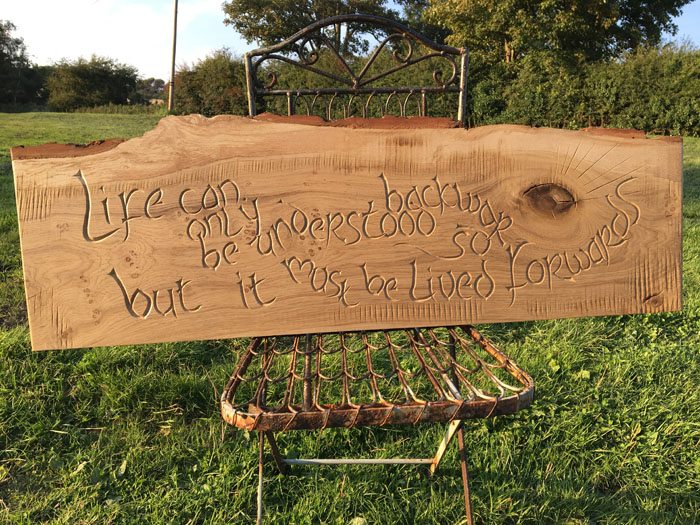 Life can
only backwar
be understood
but it must be Lived forwards